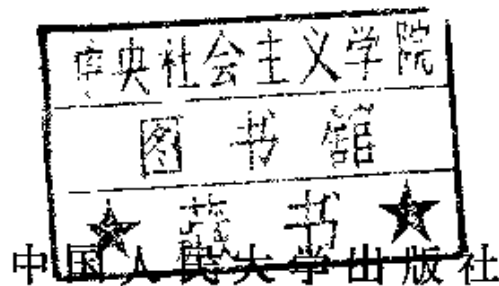 中央社会主义学院
图书馆
★ 藏书 ★
中国人民大学出版社